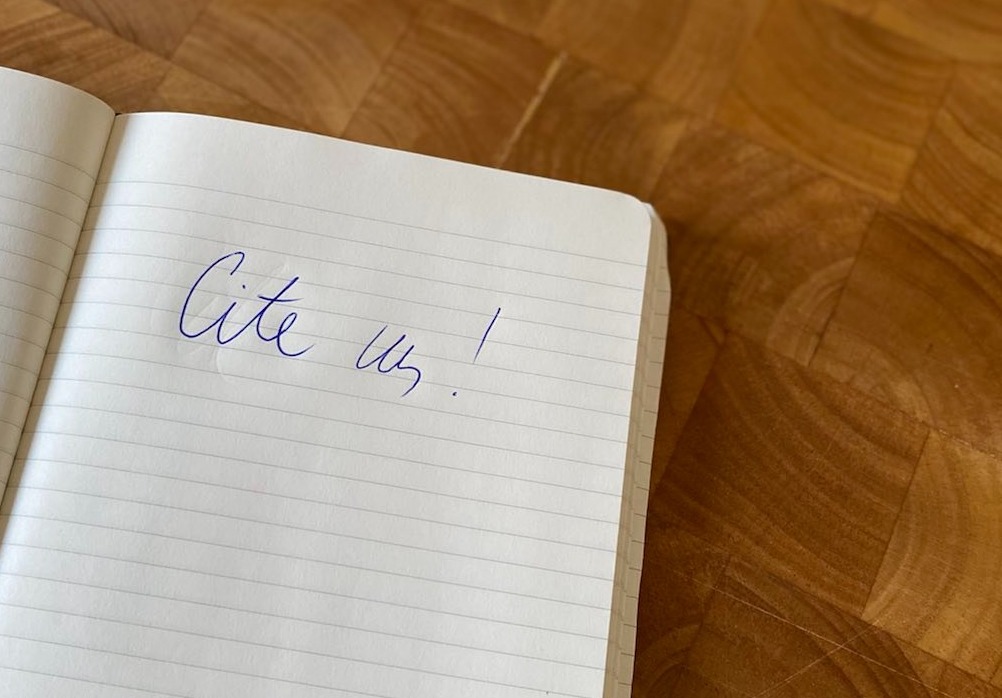 Cite us!